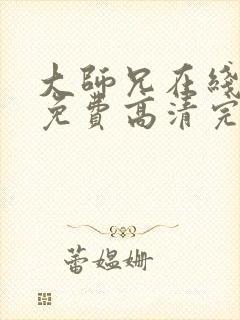 大師兄在綫
免費高清完
蕾媪姗